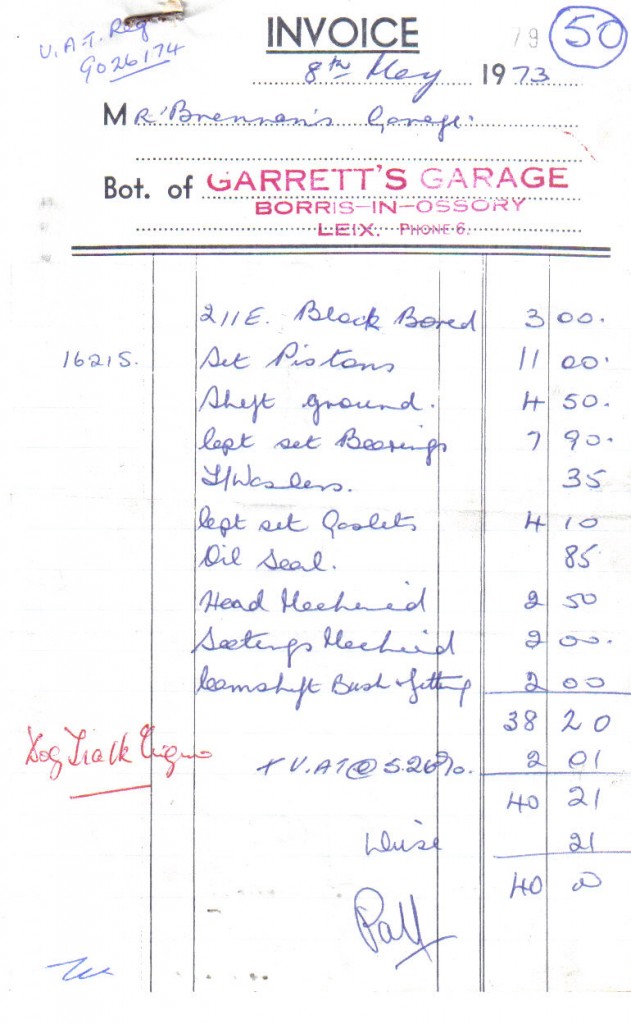 V.A.T. Reg
9026174
INVOICE
19 50
8th May 1973
Mr Brennan's Garage.
Bot. of GARRETT'S GARAGE
BORRIS-IN-OSSORY
LEIX. PHONE 6.
211E. Block Bored 3 00.
1621S. Set Pistons 11 00.
Shaft ground. 4 50.
Cept set Bearings 7 90.
T/Washers. 35
Cept set Gaskets 4 10
Oil Seal. 85
Head Mechenid 2 50
Seetings Mechenid 2 00.
Camshaft Bush & fitting 2 00
38 20
Dog Track Engine
+ V.A.T @ 5.26%. 2 01
40 21
21
40 00